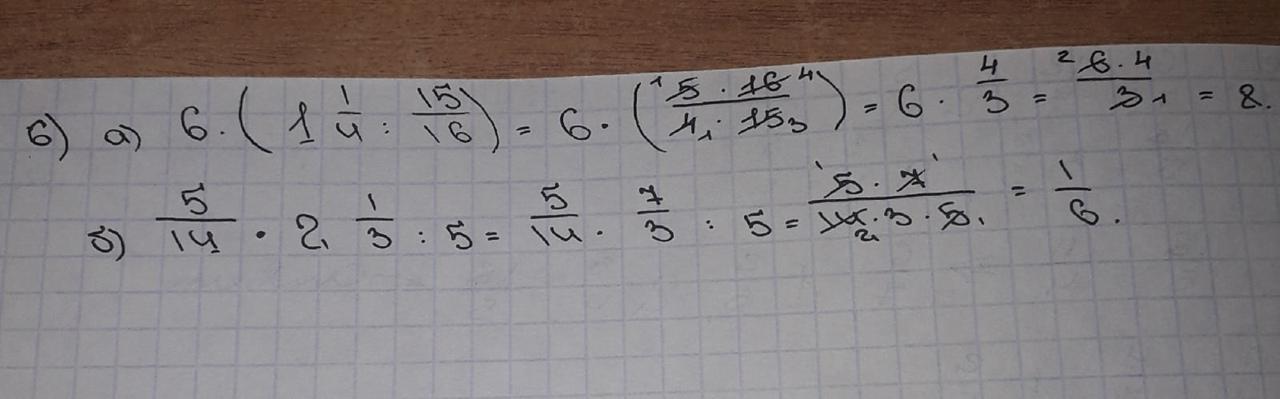 6) а) 6 · (1 1/4 : 15/16) = 6 · (5 · 16 / 4 · 15) = 6 · 4/3 = 6 · 4 / 3 = 8.
б) 5/14 · 2 1/3 : 5 = 5/14 · 7/3 : 5 = 5 · 7 / 14 · 3 · 5 = 1/6.